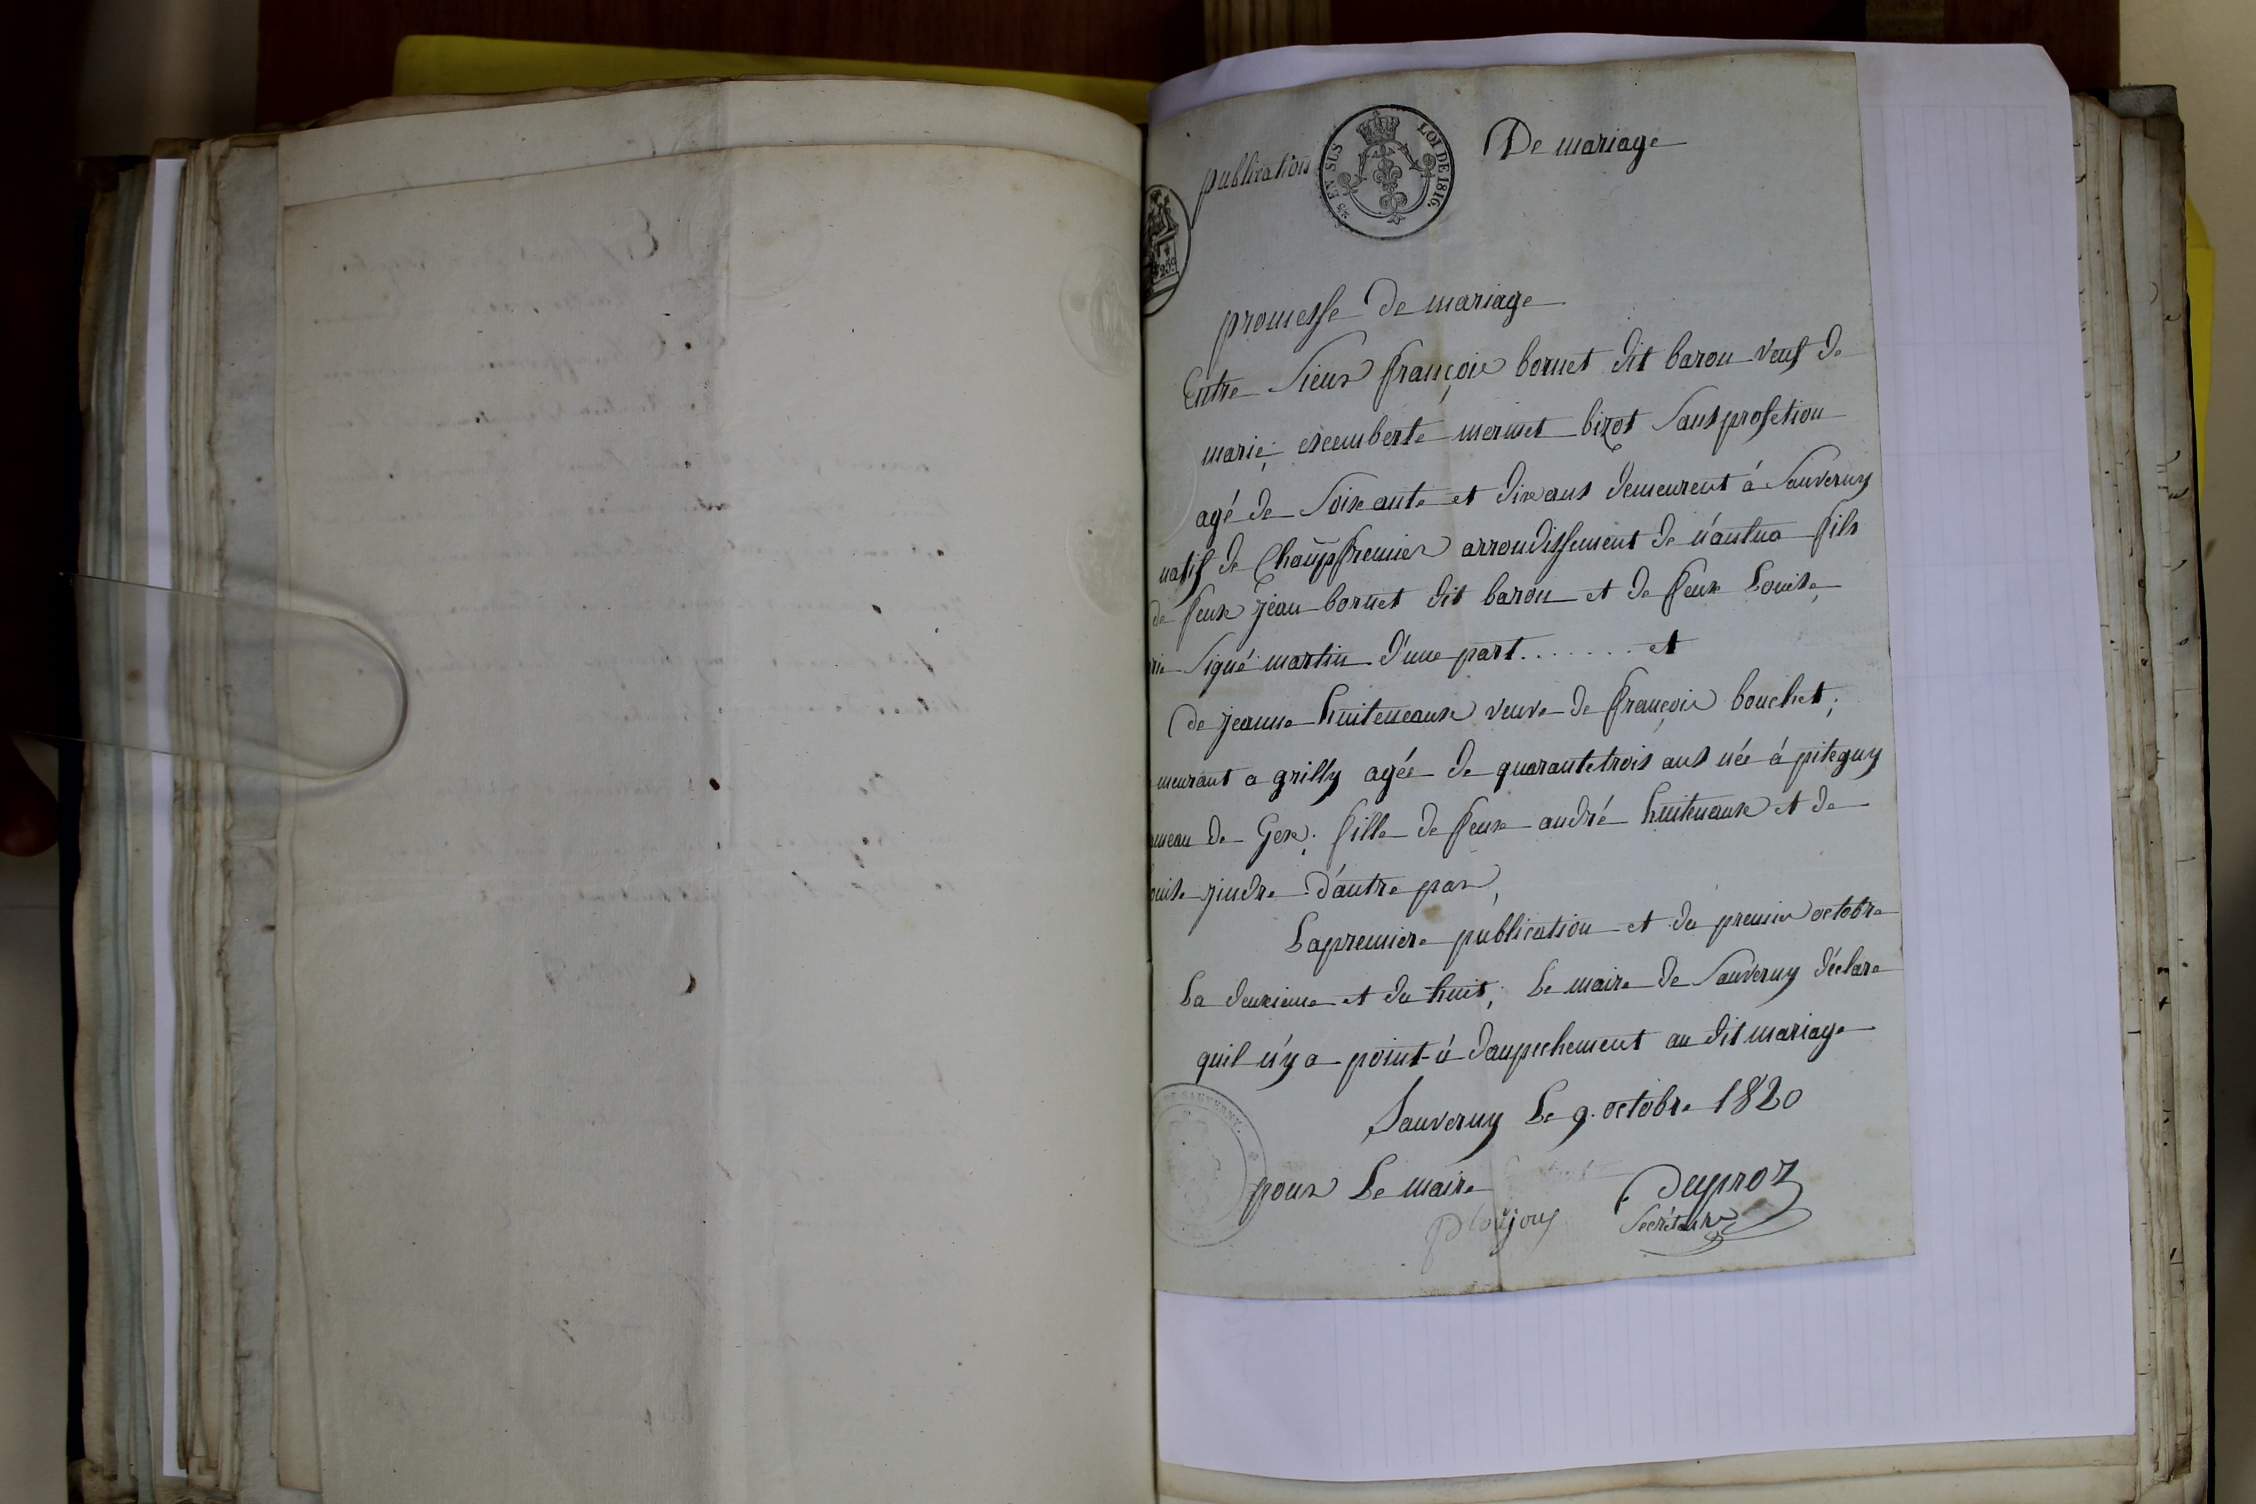 publication De mariage
25 EN SUS
LOI DE 1816.
25c
promesse de mariage
Entre Sieur françois bornet dit baron veuf de
marie, mermet bizot sans profetion
agé de Soixante et dix ans demeurent á Sauverny
natif de Champfremier arrondissement de nantua fils
de feux jean bornet dit baron et de feux Louise,
Signé martin d'une part ....... et
de jeanne huiteneaux veuve de françois bouchet,
meurant a grilly agée de quarantetrois ans née á piteguy
meau de Gex; fille de feux andré huitenaux et de
ouise jindre d'autre par,
La premiere publication et du premier octobre
La deuxieme et du huit; Le maire de Sauverny déclare
quil n'y a point á d'anpechement au dit mariage
Sauverny Le 9. octobre 1820
DE SAUVERNY.
pour Le maire
Secrétaire